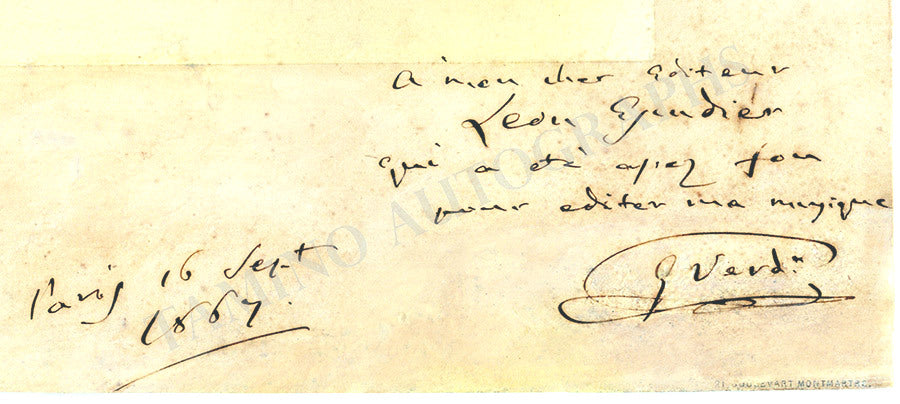 A mon cher Editeur
Leon Escudier
qui a eté assez fou
pour editer ma musique
G Verdi
Paris 16 Sept
1867.
TAMINO AUTOGRAPHS
21, BOULEVART MONTMARTRE.